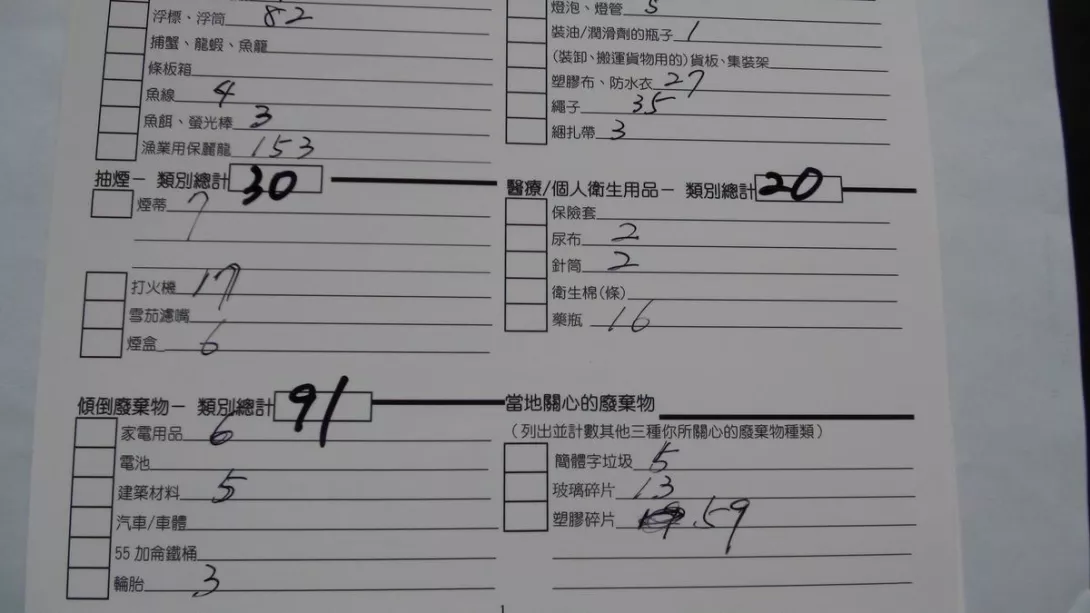 浮標、浮筒 82
捕蟹、龍蝦、魚籠
條板箱
魚線 4
魚餌、螢光棒 3
漁業用保麗龍 153
燈泡、燈管 5
裝油/潤滑劑的瓶子 1
(裝卸、搬運貨物用的)貨板、集裝架
塑膠布、防水衣 27
繩子 35
綑扎帶 3
抽煙－ 類別總計 30
煙蒂 7
打火機 17
雪茄濾嘴
煙盒 6
醫療/個人衛生用品－ 類別總計 20
保險套
尿布 2
針筒 2
衛生棉(條)
藥瓶 16
傾倒廢棄物－ 類別總計 91
家電用品 6
電池
建築材料 5
汽車/車體
55 加侖鐵桶
輪胎 3
當地關心的廢棄物
(列出並計數其他三種你所關心的廢棄物種類)
簡體字垃圾 5
玻璃碎片 13
塑膠碎片 59
1